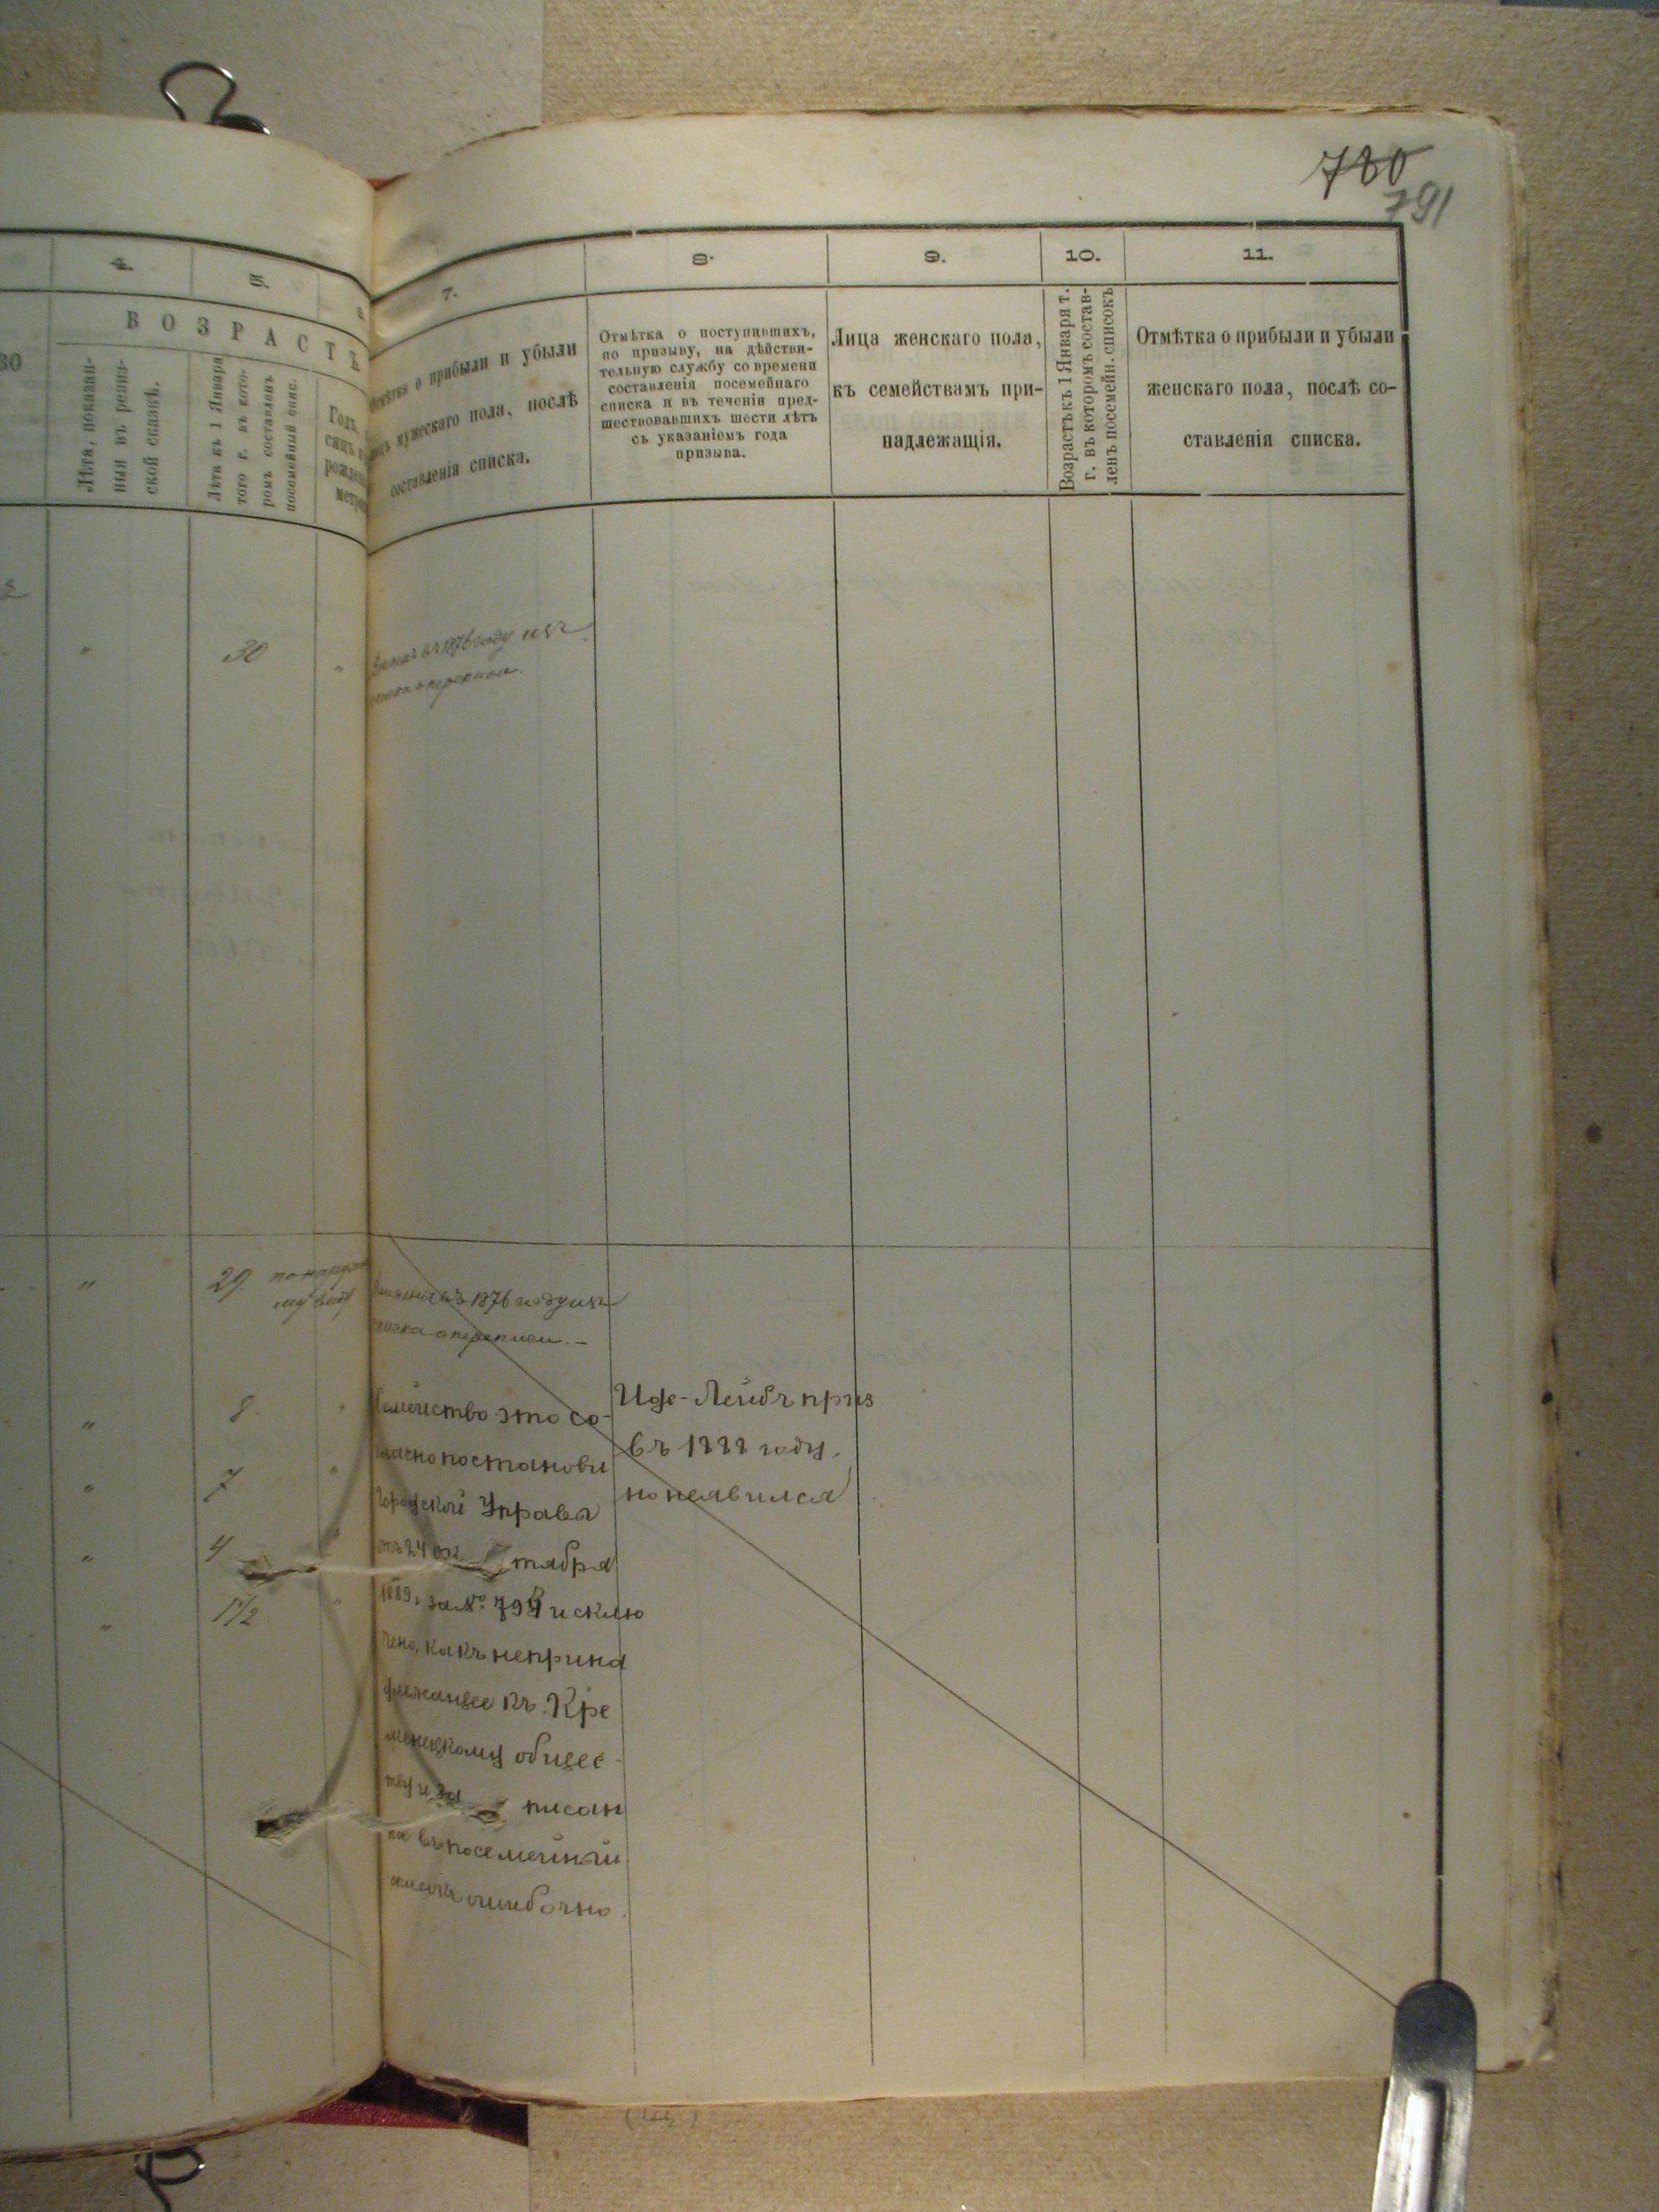 780
791
4.
5.
7.
8.
9.
10.
11.
ВОЗРАСТЪ
Лѣта, показан-
ныя въ ревиз-
ской сказкѣ.
Лѣта къ 1 Января
того г. въ кото-
ромъ составленъ
посемейный спис.
Годъ,
о прибыли и убыли
мужескаго пола, послѣ
составленія списка.
Отмѣтка о поступившихъ,
по призыву, на дѣйстви-
тельную службу со времени
составленія посемейнаго
списка и въ теченіи пред-
шествовавшихъ шести лѣтъ
съ указаніемъ года
призыва.
Лица женскаго пола,
къ семействамъ при-
надлежащія.
Возрастъ къ 1 Января т.
г. въ которомъ состав-
ленъ посемейн. списокъ
Отмѣтка о прибыли и убыли
женскаго пола, послѣ со-
ставленія списка.
" 30 "
въ 1876 году изъ
" 29
въ 1876 году изъ
списка о переписи. –
" 8 "
" 7 "
" 4 "
" 1 1/2 "
Семейство это со-
гласно постанови
Городской Управы
отъ 24 октября
1889 г. за № исклю
чено, какъ неприна
длежащее къ Кре
менецкому общес-
тву и за писан
но въ посемейный
списокъ ошибочно.
Лейбъ приз
въ 1888 году.
но неявился